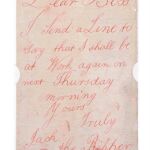 Dear Sir
I Send a Line to
Say that I shall be
at Work again on
next Thursday
morning
Yours
Truly
Jack
the Ripper